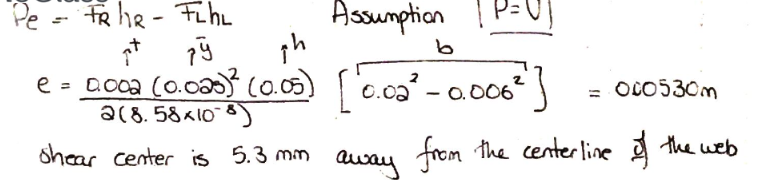 Pe = FR hR - FLhL Assumption P=V
t ȳ h b
e = 0.002 (0.025)² (0.05) [0.02² - 0.006²] = 0.00530m
2(8.58x10⁻⁸)
Shear center is 5.3 mm away from the centerline of the web